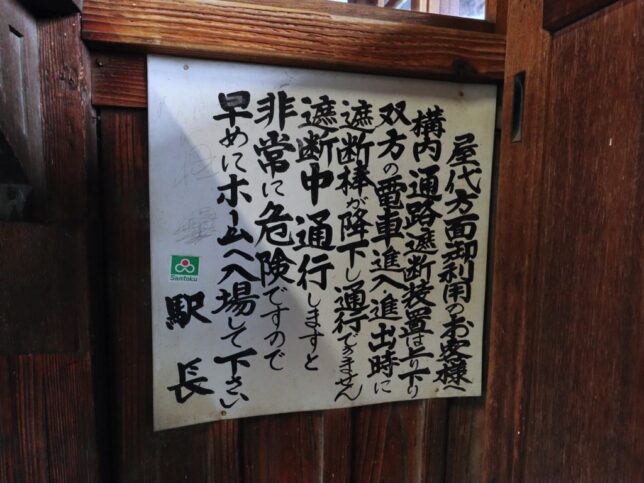 屋代方面御利用のお客様へ
構内通路遮断装置は上り下り
双方の電車進入・進出時に
遮断棒が降下し通行できません
遮断中通行しますと
非常に危険ですので
早めにホームへ入場して下さい
駅長
Santoku